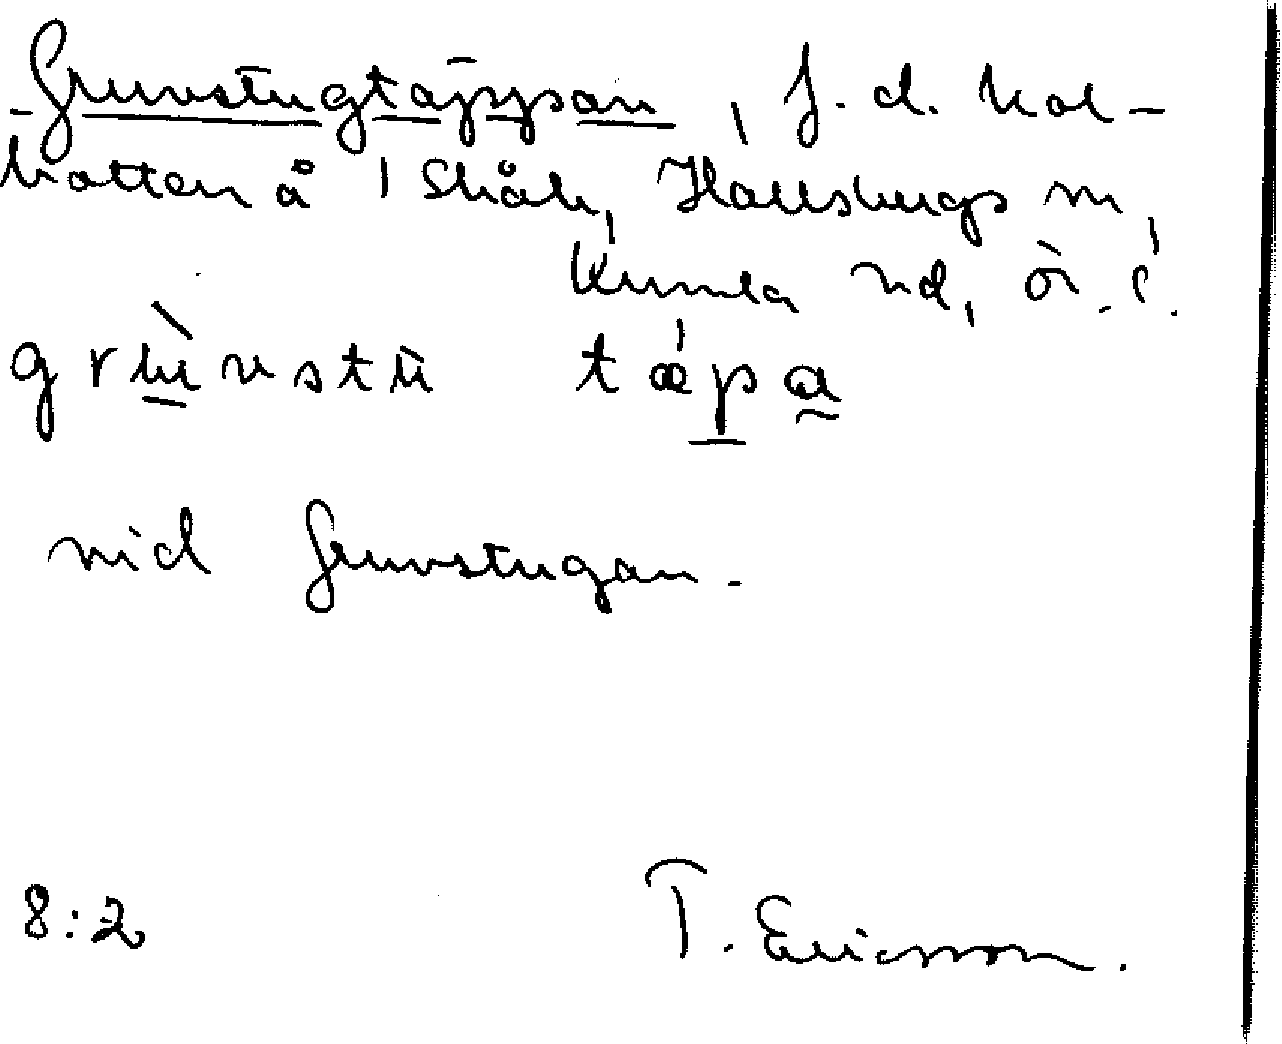 Gruvstugtäppan, f.d. kol-
botten å Skåle, Hallsbergs sn,
Kumla hd, Ör. l.
grùvstù tǽpa
vid Gruvstugan.
8:2 T. Ericsson.